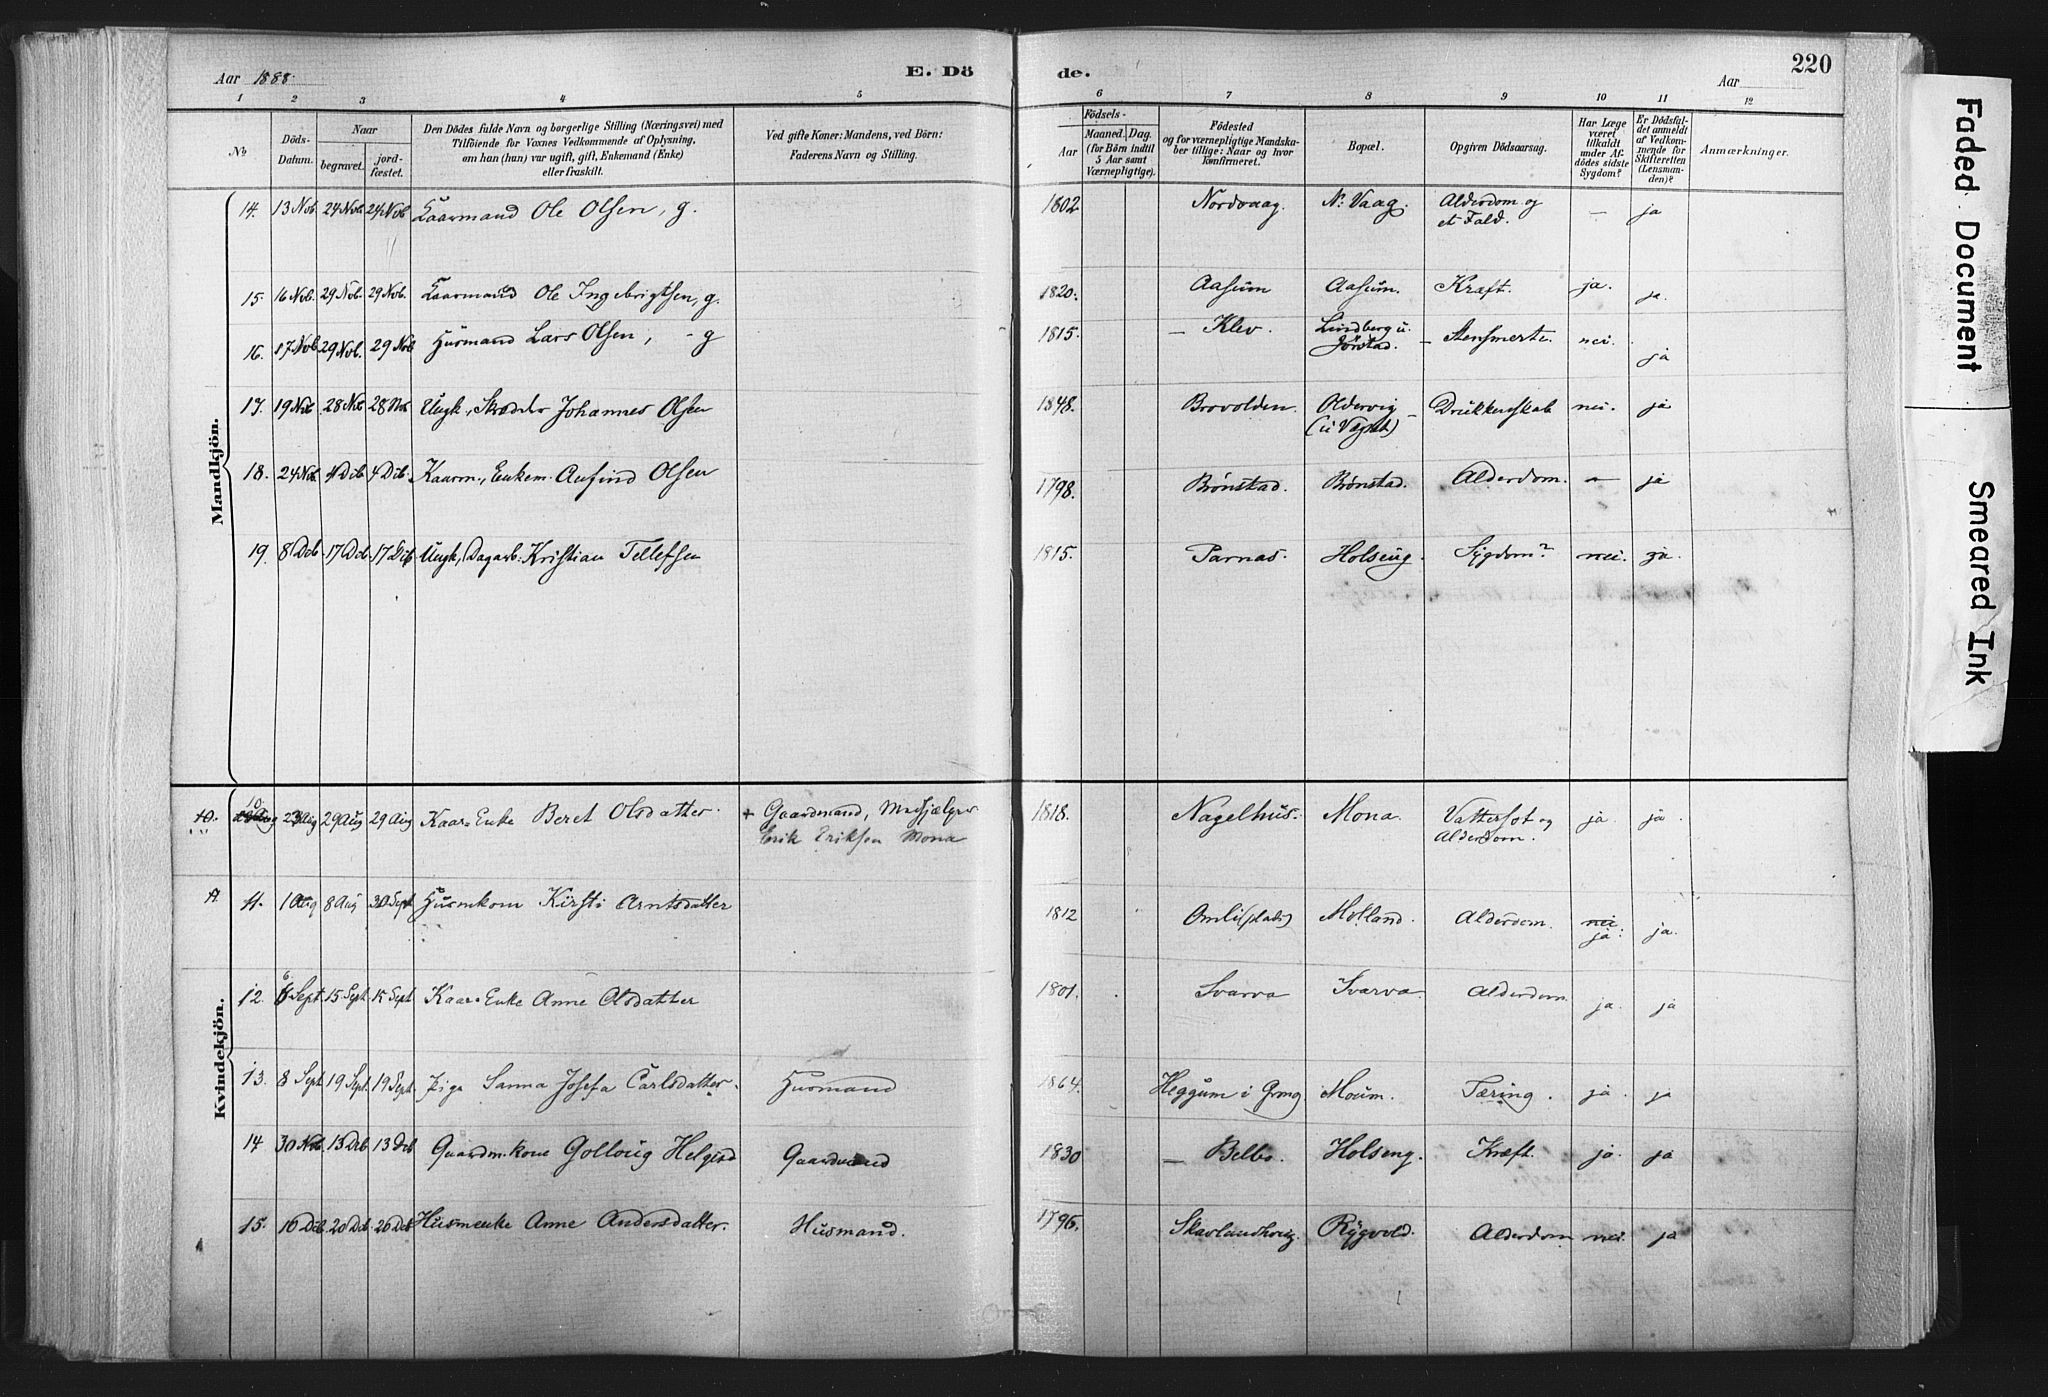 Aar 1888.
E. Döde.
Aar
220
1 2 3 4 5 6 7 8 9 10 11 12
No.
Döds-Datum.
Naar
begravet. jordfæstet.
Den Dödes fulde Navn og borgerlige Stilling (Næringsvei) med
Tilföiende for Voxnes Vedkommende af Oplysning,
om han (hun) var ugift, gift, Enkemand (Enke)
eller fraskilt.
Ved gifte Koner: Mandens, ved Börn:
Faderens Navn og Stilling.
Födsels-
Aar
Maaned. Dag.
(for Börn indtil
5 Aar samt
Værnepligtige).
Födested
og for værnepligtige Mandska-
ber tillige: Naar og hvor
konfirmeret.
Bopæl.
Opgiven Dödsaarsag.
Har Læge
været
tilkaldt
under Af-
dödes sidste
Sygdom?
Er Dödsfal-
det anmeldt
af Vedkom-
mende for
Skifteretten
(Lensman-
den)?
Anmærkninger.
Mandkjön.
14. 13 Nov. 24 Nov. 24 Nov. Kaarmand Ole Olsen, g. 1802 Nordvaag. N. Vaag. Alderdom og — ja
et Fald.
15. 16 Nov. 29 Nov. 29 Nov. Kaarmand Ole Ingebrigtsen, g. 1820. Aasum Aasum. Kræft. ja. ja.
16. 17 Nov. 29 Nov. 29 Nov. Husmand Lars Olsen, - g 1815. — Klev. Lindberg u. - Stensmerte. nei. ja
Jørstad.
17. 19 Nov 28 Nov 28 Nov Ungk, Skrædder Johannes Olsen 1848. Brovolden. Oldervig - Drukkenskab nei. ja
18. 24 Nov. 4 Deb. 4 Deb. Kaarm., Enkem. Anfind Olsen 1798. Brønstad. Brønstad. Alderdom. — ja
19. 8 Deb. 17 Deb. 17 Deb Ungk, Dagarb. Kristian Tellefsen 1815. Parnas. Holseng. Sygdom? nei. ja.
Kvindekjön.
10. 10. 23 Aug 29 Aug 29 Aug Kaar-Enke Beret Olsdatter. + Gaardmand, Medhjælper 1818. Nagelhus. Mona. Vattersot og ja. ja.
Erik Eriksen Mona Alderdom.
11. 1 Aug 8 Aug 30 Sept Husmkom Kirsti Arntsdatter 1812 Omli (plads) Molland. Alderdom. nei ja. ja.
12. 6 Sept 15 Sept 15 Sept Kaar-Enke Anne Olsdatter 1801. Svarva Svarva. Alderdom. ja. ja
13. 8 Sept 19 Sept. 19 Sept. Pige Sanna Josefa Carlsdatter. Husmand 1864. Heggum i Grong Moum. Tæring. ja. ja
14 30 Nov. 13 Deb 13 Deb Gaardm.kone Gollaug Helgesd Gaardmand 1830 — Belbo. Holseng. Kræft. ja. ja
15. 16 Deb. 20 Deb. 20 Deb Husmenke Anne Andersdatter. Husmand. 1796. Skavlandhoug. Rygvold. Alderdom nei. ja
Faded Document
Smeared Ink